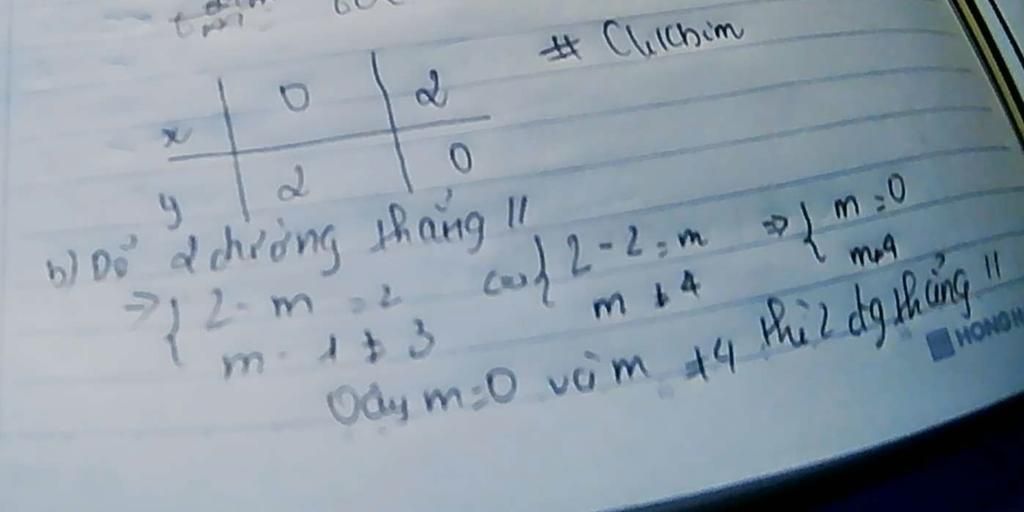 x | 0 | 2
y | 2 | 0
b) Để 2 đường thẳng //
=> { 2 - m = 2
m - 1 ≠ 3
{ 2 - 2 = m
m ≠ 4
=> { m = 0
m ≠ 4
Vậy m = 0 và m ≠ 4 thì 2 đg thẳng //